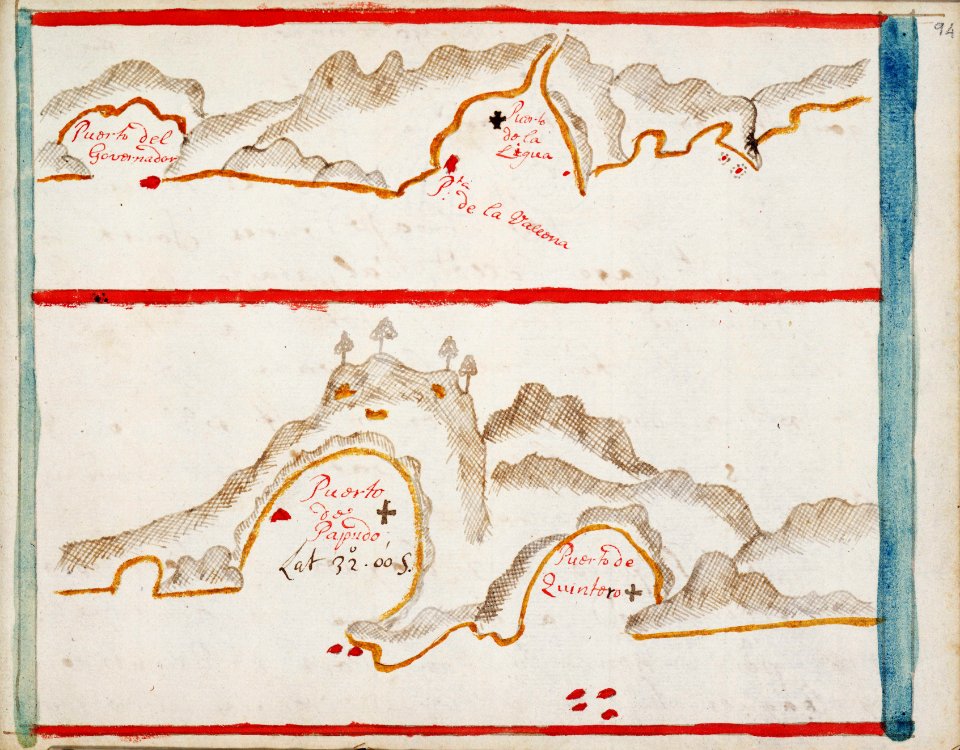 94
Puerto del
Governador
Puerto
de la
Ligua
P.ta de la Valeona
Puerto
de
Papudo
Lat 32°.00' S.
Puerto de
Quintero